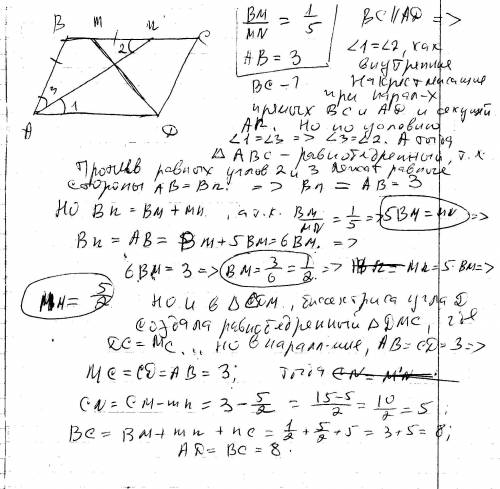 B M N C
2
3
1
A D
BM/MN = 1/5
AB = 3
BC - ?
BC || AD =>
∠1=∠2, как
внутренние
накрест лежащие
при парал-х
прямых BC и AD и секущей
AN. Но по условию
∠1=∠3 => ∠3=∠2. А тогда
△ABC - равнобедренный, т.к.
Против равных углов 2 и 3 лежат равные
стороны AB=Bn. => Bn = AB = 3
Но Bn = Bm + mn, а т.к. BM/MN = 1/5 => 5BM = MN
Bn = AB = Bm + 5Bm = 6Bm. =>
6BM = 3 => BM = 3/6 = 1/2 => Mn = 5Bm =>
MN = 5/2 Но и в △CDM, биссектриса угла D
создала равнобедренный △DMC, где
DC = MC. Но в паралл-ме, AB = CD = 3 =>
MC = CD = AB = 3; тогда
CN = CM - mn = 3 - 5/2 = 15-5/2 = 10/2 = 5;
BC = BM + mn + nc = 1/2 + 5/2 + 5 = 3 + 5 = 8;
AD = BC = 8.